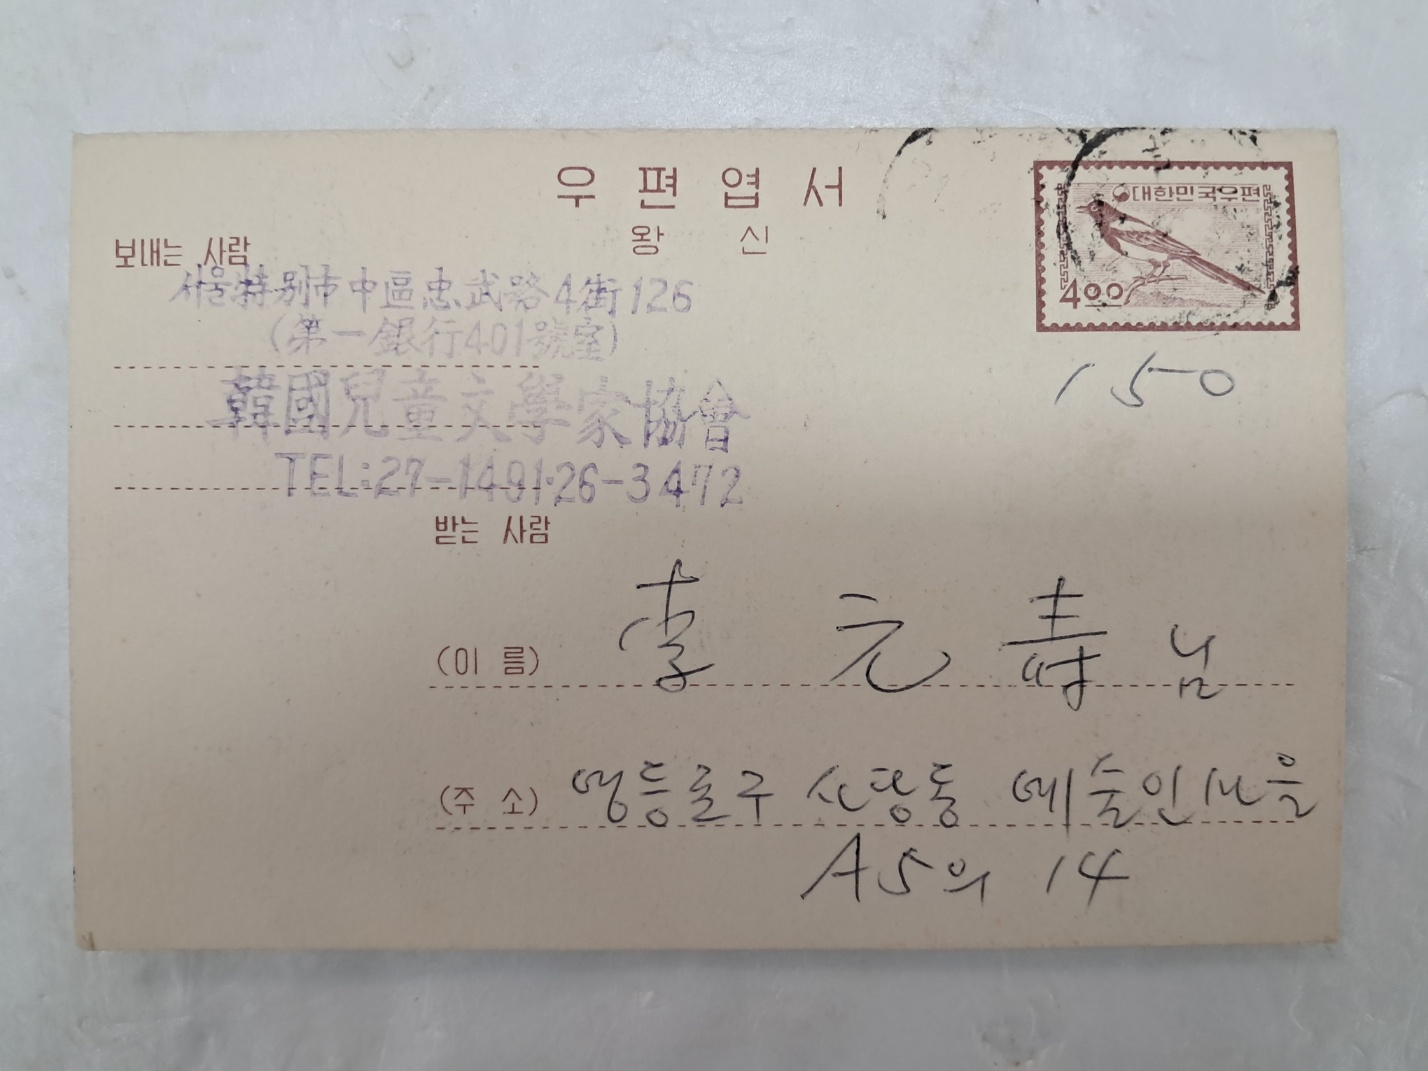 우편엽서
왕 신
대한민국우편
4 00
150
보내는 사람
서울特别市中區忠武路4街126
(第一銀行401號室)
韓國兒童文學家協會
TEL:27-1491·26-3472
받는 사람
(이 름) 李元壽님
(주 소) 영등포구 신당동 예술인마을
A5의 14